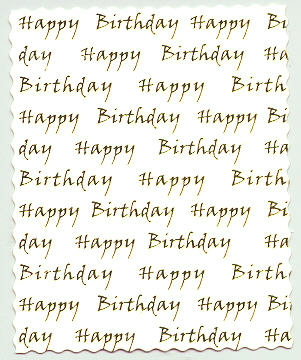 Happy Birthday Happy Bi
day Happy Birthday Ha
Birthday Happy Birth
Happy Birthday Happy Bi
day Happy Birthday Ha
Birthday Happy Birth
Happy Birthday Happy Bi
day Happy Birthday Ha
Birthday Happy Birth
Happy Birthday Happy Bi
day Happy Birthday Ha